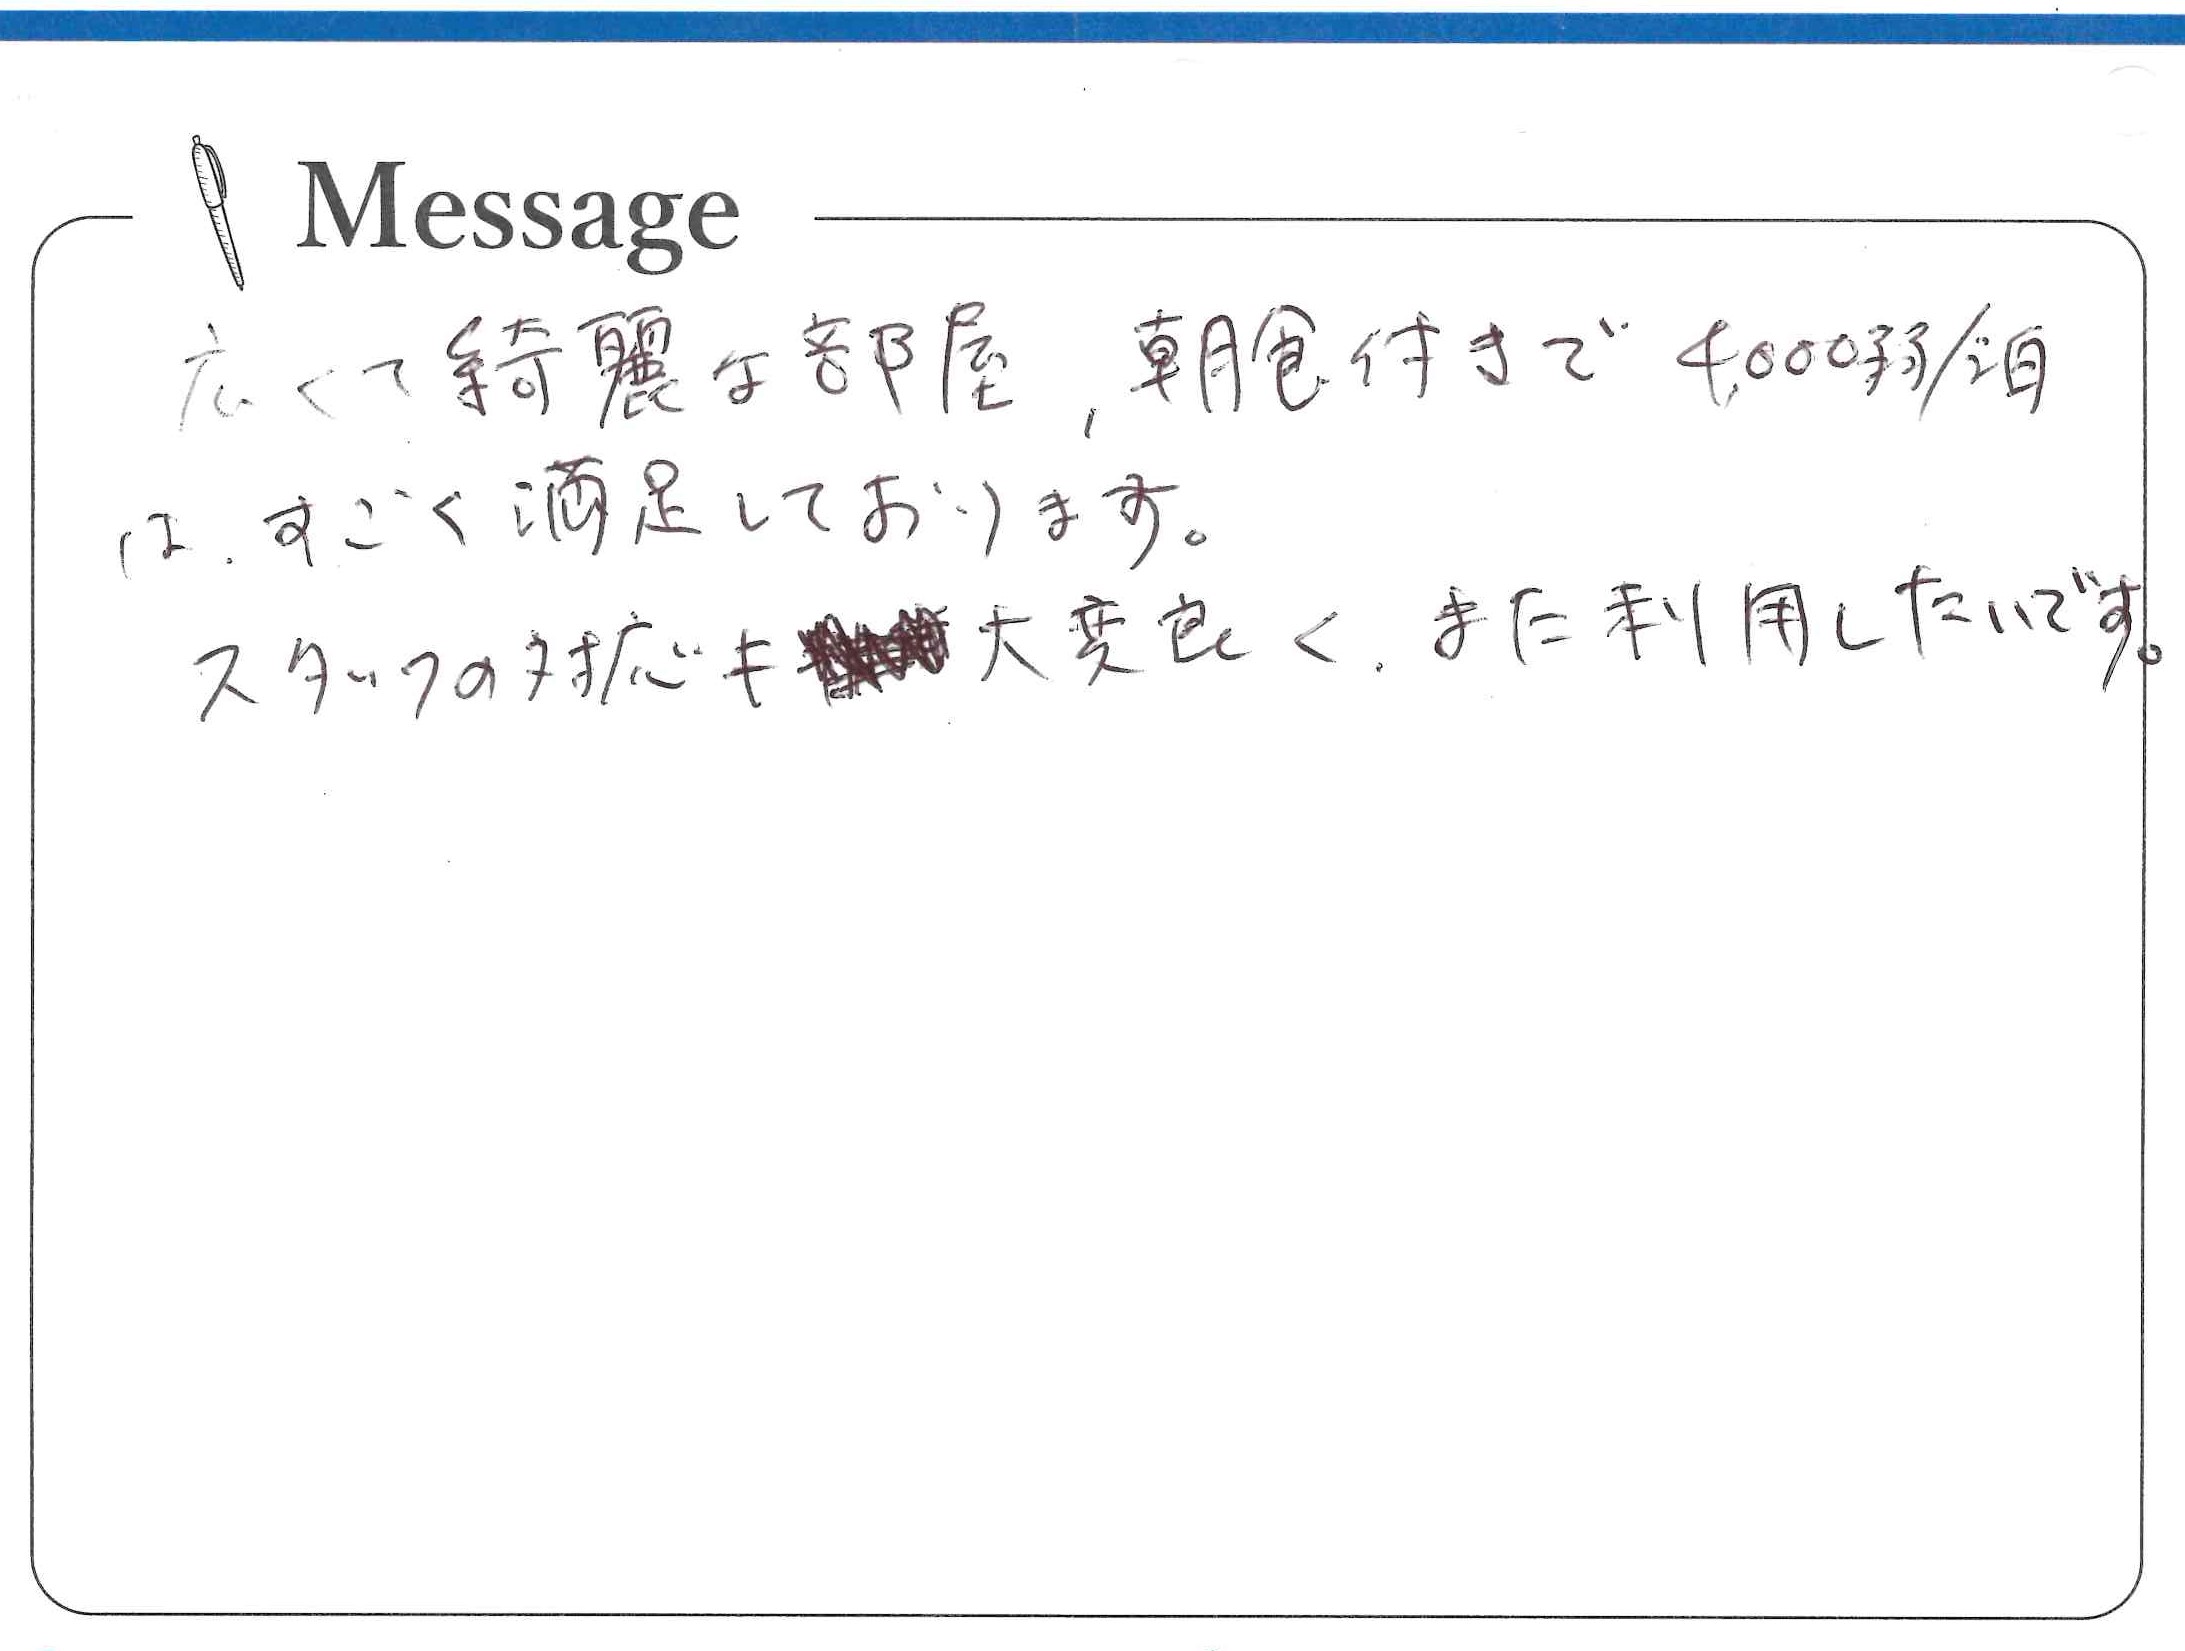 Message
広くて綺麗な部屋、朝食付きで4,000弱/泊
は、すごく満足しております。
スタッフの対応も大変良く、また利用したいです。